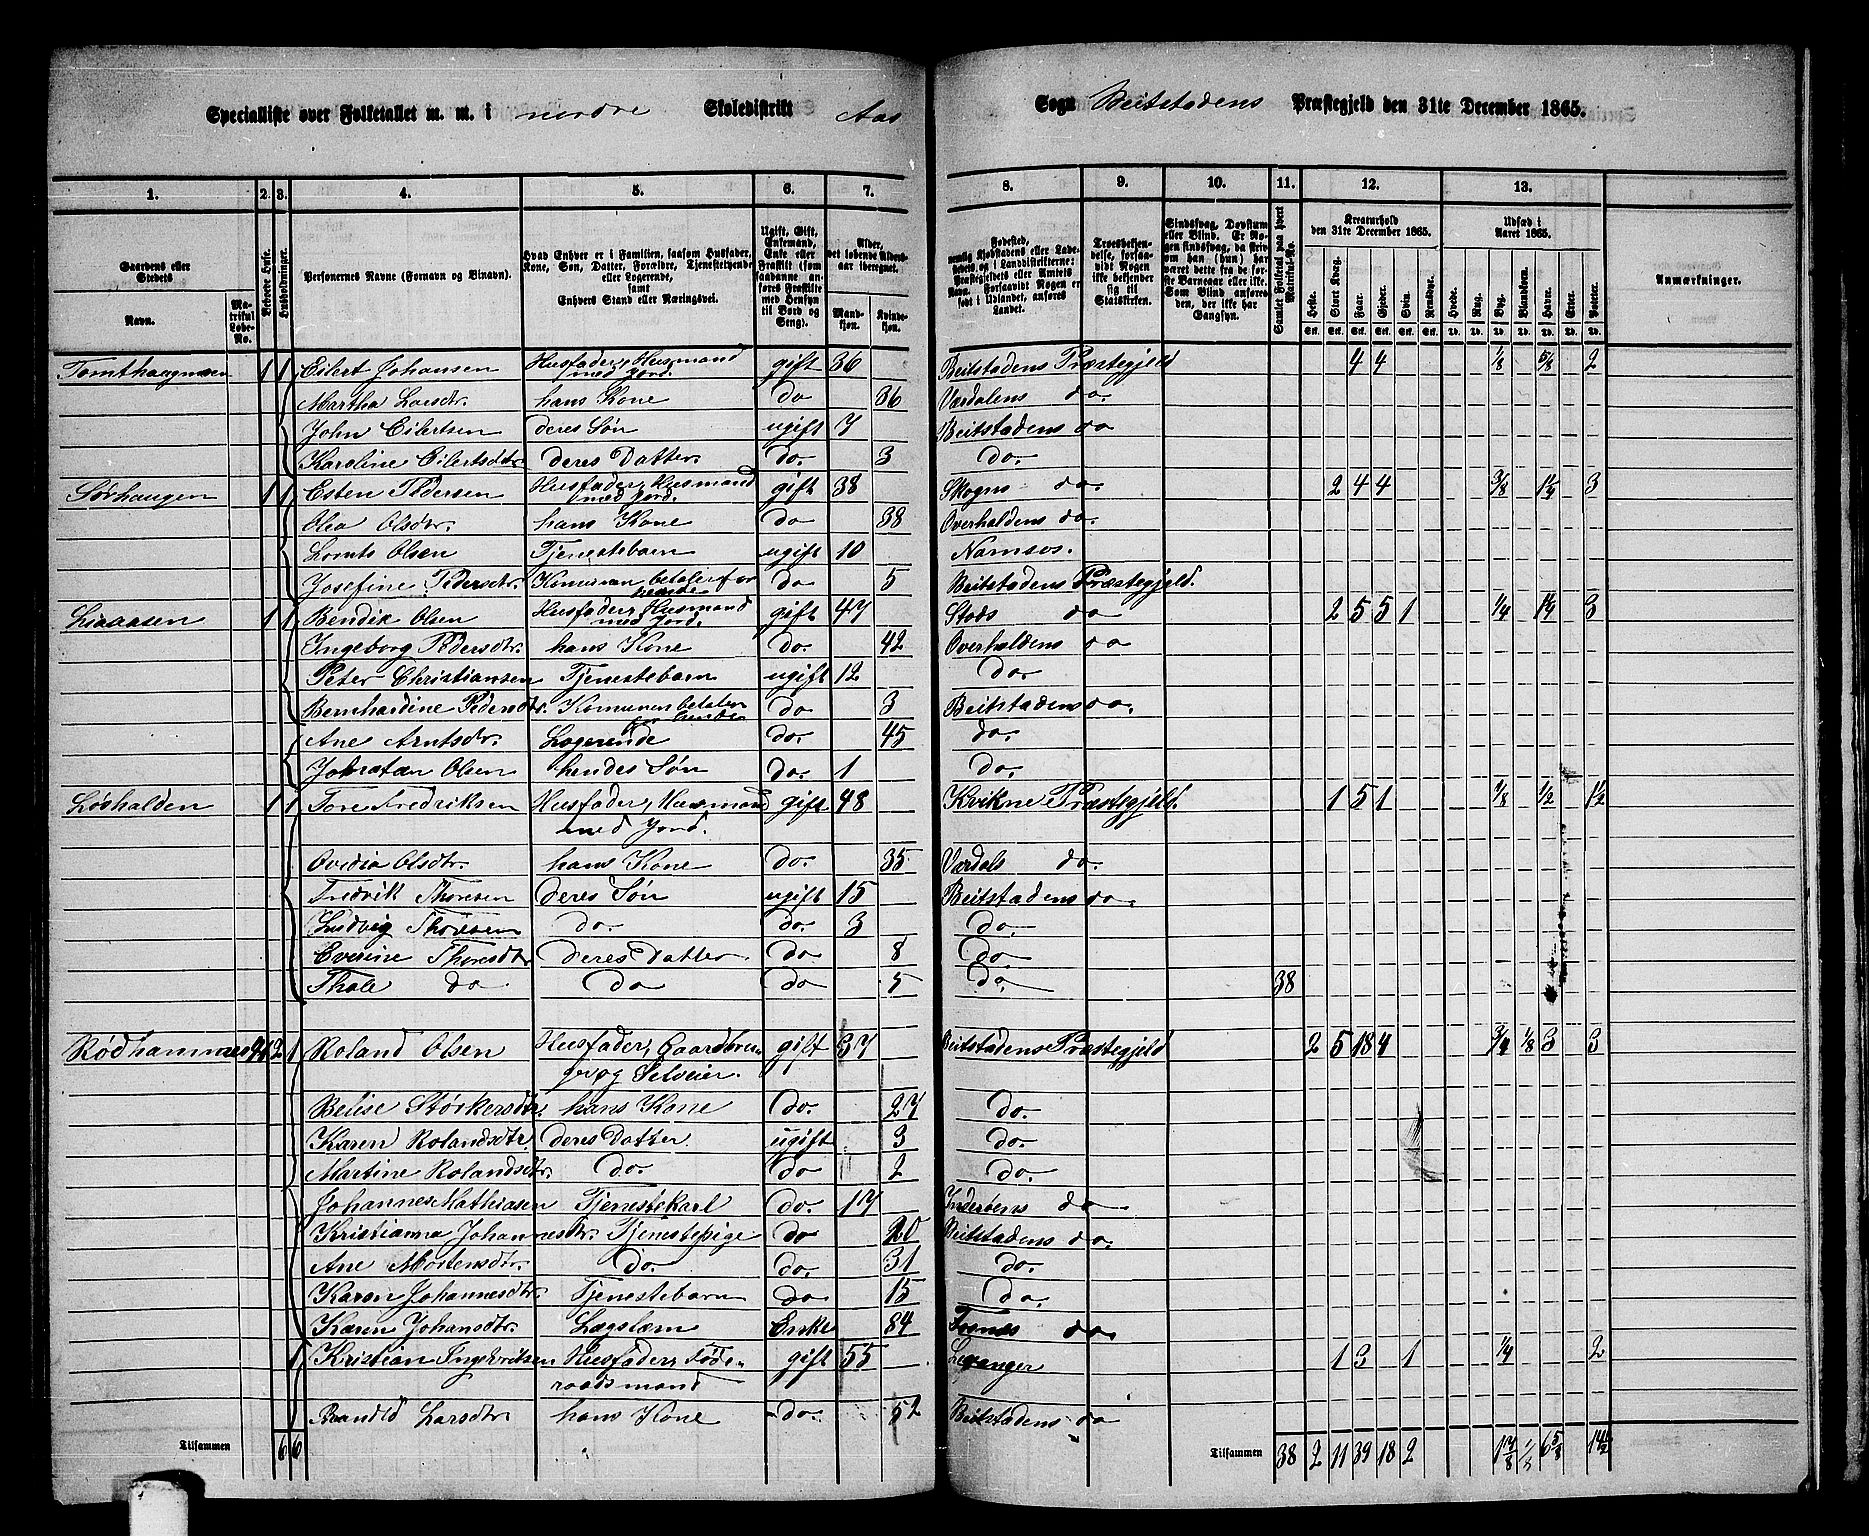 Specialliste over Folketallet m. m. i nordre Skoledistrikt Aas Sogn Beitstadens Præstegjeld den 31te December 1865.
1. 2. 3. 4. 5. 6. 7. 8. 9. 10. 11. 12. 13.
Gaardens eller Stedets
Navn.
Matrikul Løbe-No.
Beboede Huse.
Husholdninger.
Personernes Navne (Fornavn og Binavn).
Hvad Enhver er i Familien, saasom Husfader, Kone, Søn, Datter, Forældre, Tjenestetyende eller Logerende, samt Enhvers Stand eller Næringsvei.
Ugift, Gift, Enkemand, Enke eller Fraskilt (som saadanne anføres Fraskilte med Hensyn til Bord og Seng).
Alder, det løbende Aldersaar iberegnet.
Mandkjøn. Kvindekjøn.
Fødested, nemlig Kjøbstadens eller Ladestedets og i Landdistrikterne: Præstegjeldets eller Amtets Navn. Forsaavidt Nogen er født i Udlandet, anføres Landet.
Troesbekjendelse, forsaavidt Nogen ikke bekjender sig til Statskirken.
Sindssvag, Døvstum eller Blind. Er Nogen sindssvag, da skrives om han (hun) har været dette fra de første Barneaar eller ikke. Som Blind anføres den, der ikke har Gangsyn.
Samlet Folketal paa hvert Matrikul-No.
Kreaturhold den 31te December 1865.
Heste. Stort Kvæg. Faar. Gjeder. Svin. Rensdyr.
Udsæd i Aaret 1865.
Hvede. Rug. Byg. Blandkorn. Havre. Erter. Poteter.
Anmærkninger.
Tomthaugmoen 1 1 Eilert Johansen Husfader, Husmand med Jord. gift 36 Beitstadens Præstegjeld 4 4 1/8 5/8 2
Martha Larsdtr. hans Kone do 36 Værdalens do.
John Eilertsen deres Søn ugift 7 Beitstadens do
Karoline Eilertsdtr. deres Datter do. 3 do.
Sørhaugen 1 1 Esten Pedersen Husfader, Husmand med Jord. gift 38 Skogns do. 2 4 4 3/8 1 1/4 3
Olea Olsdtr. hans Kone do 38 Overhaldens do.
Lornts Olsen Tjenestebarn ugift 10 Namsos.
Josefine Pedersdtr. Komunen betaler for hende do 5 Beitstadens Præstegjeld.
Liaaasen 1 1 Bendik Olsen Husfader, Husmand med Jord. gift 47 Stods do 2 5 5 1 1/4 1 1/4 3
Ingeborg Pedersdtr. hans Kone do. 42 Overhaldens do
Peter Christiansen Tjenestebarn ugift 12 do.
Bernhardine Pedersdtr. Komunen betaler for hende do 3 Beitstadens do.
Ane Arntsdtr. Logerende do. 45 do.
Johnatan Olsen hendes Søn do. 1 do.
Løshalden 1 1 Tore Fredriksen Husfader, Husmand med Jord. gift 48 Kvikne Præstegjeld. 1 5 1 1/8 1/2 1 1/2
Ovedia Olsdtr. hans Kone do. 35 Værdals do.
Fredrik Thoresen deres Søn ugift 15 Beitstadens do.
Ludvig Thoresen do. do. 3 do.
Everine Thoresdtr deres Datter do 8 do
Thale do do do 5 do. 38
Rødhammer 91 2 1 Roland Olsen Husfader, Gaardbruger og Selveier. gift 37 Beitstadens Præstegjeld 2 5 18 4 3/4 1/8 3 3
Belise Størkersdtr. hans Kone do. 27 do.
Karen Rolandsdtr. deres Datter ugift 3 do.
Martine Rolandsdtr. do. do 2 do.
Johannes Mathiasen Tjenestekarl do. 17 Inderøens do
Kristianna Johannesdtr. Tjenestepige do 20 Beitstadens do.
Ane Mortensdtr. do. do. 31 do.
Karen Johannesdtr. Tjenestebarn do 15 do.
Karen Johansdtr. Lægslem Enke 84 Fosnæs do.
1 Kristian Ingebritsen Husfader, Føderaadsmand gift 55 Levanger 1 3 1 1/4 2
Randld Larsdtr. hans Kone do. 52 Beitstadens do
Tilsammen 6 6 Tilsammen 38 2 11 39 18 2 1 7/8 1/8 6 5/8 14 1/2